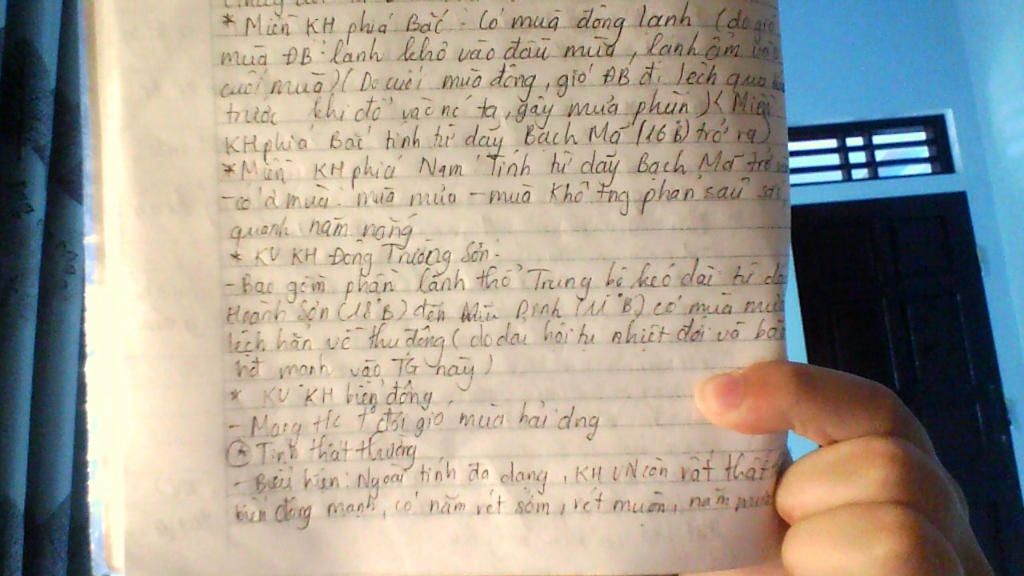 * Miền KH phía Bắc: Có mùa đông lạnh (do gió
mùa ĐB: lạnh khô vào đầu mùa, lạnh ẩm vào
cuối mùa) (Do cuối mùa đông, gió ĐB đi lệch qua
trước khi đổ vào nc ta, gây mưa phùn) (Miền
KH phía Bắc tính từ dãy Bạch Mã (16°B) trở ra)
* Miền KH phía Nam Tính từ dãy Bạch Mã trở
- có 2 mùa: mùa mưa - mùa khô tng phản sâu sắc,
quanh năm nóng
* KV KH Đông Trường Sơn:
- Bao gồm phần lãnh thổ Trung bộ kéo dài từ dãy
Hoành Sơn (18°B) đến Dinh (11°B) có mùa mưa
lệch hẳn về thu đông (do dải hội tụ nhiệt đới và bão
hđ mạnh vào TG này)
* KV KH biển đông
- Mang t/c đới gió mùa hải dng
* Tính thất thường
- Biểu hiện: Ngoài tính đa dạng, KH VN còn rất thất
biến động mạnh, có năm rét sớm, rét muộn, năm mưa